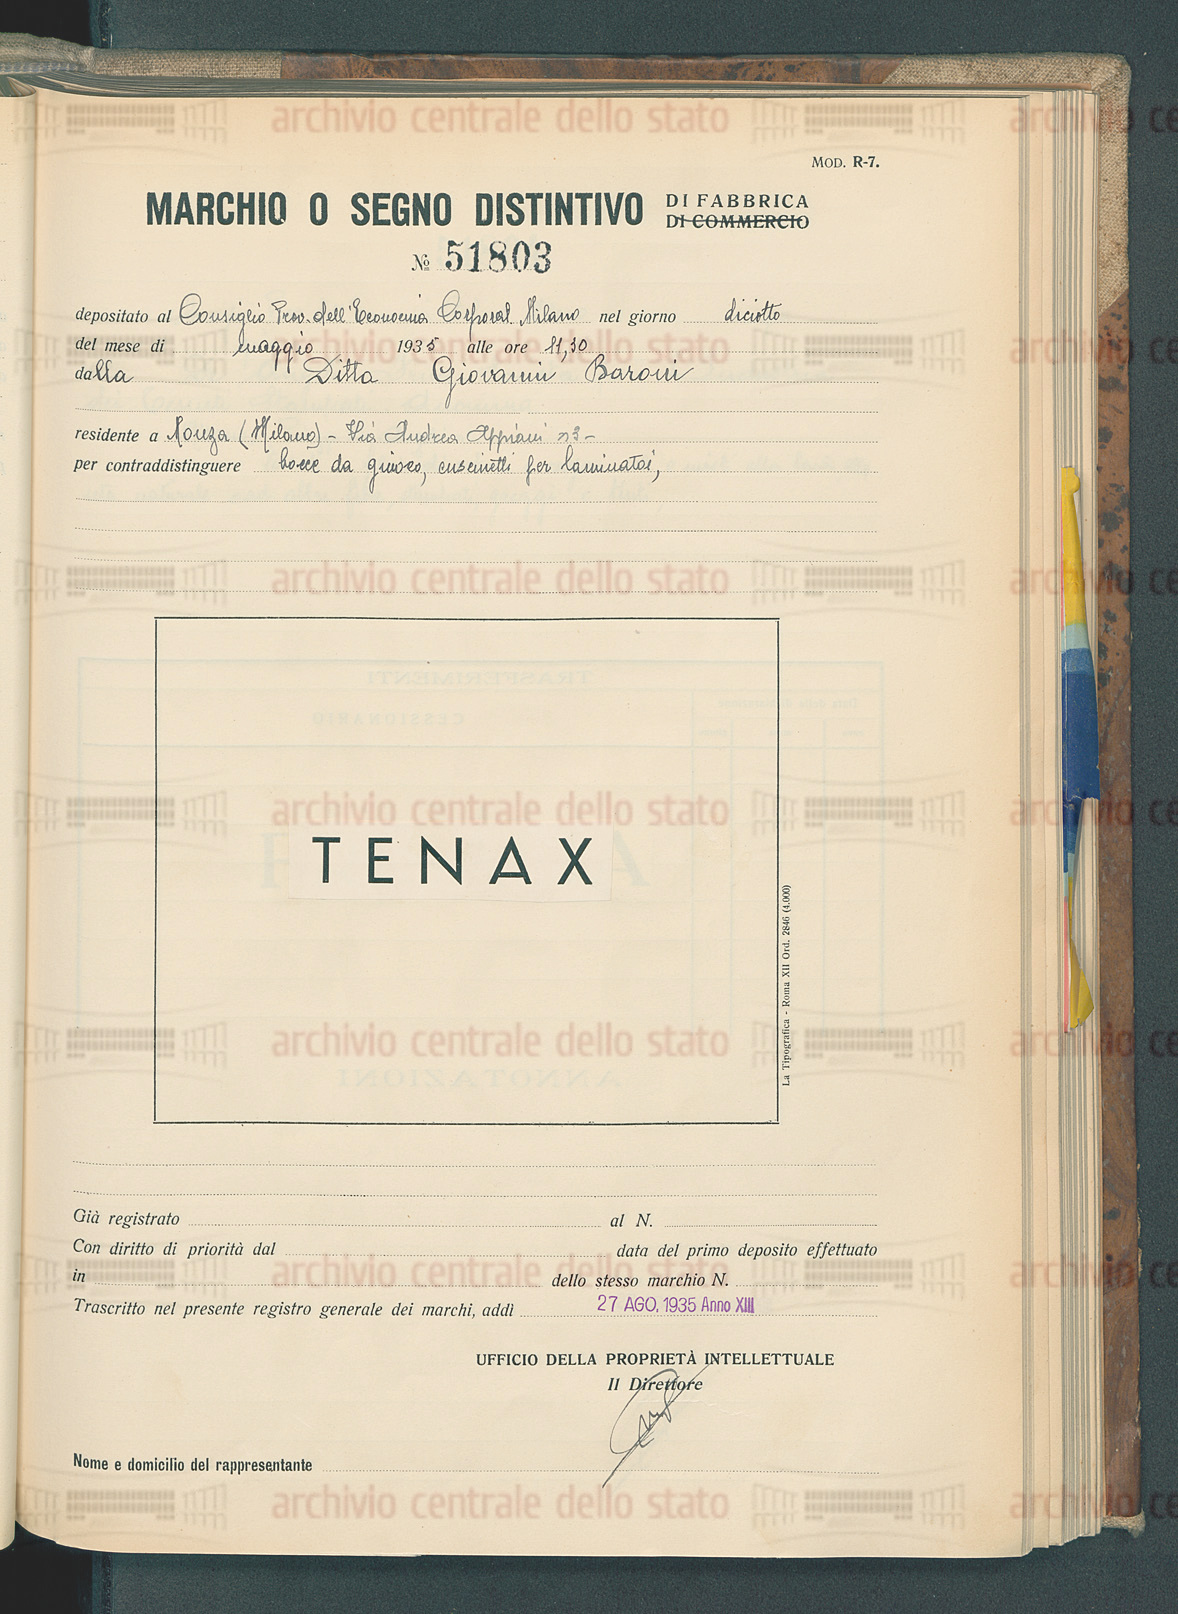 MOD. R-7.
MARCHIO O SEGNO DISTINTIVO DI FABBRICA
DI COMMERCIO
№ 51803
depositato al Consiglio Prov. dell'Economia Corporat. Milano nel giorno diciotto
del mese di maggio 1935 alle ore 11,30
dalla Ditta Giovanni Baroni
residente a Monza (Milano) - Via Andrea Appiani n3-
per contraddistinguere bocce da giuoco, cuscinetti per laminatoi,
TENAX
La Tipografica - Roma XII Ord. 2846 (4.000)
Già registrato al N.
Con diritto di priorità dal data del primo deposito effettuato
in dello stesso marchio N.
Trascritto nel presente registro generale dei marchi, addì 27 AGO. 1935 Anno XIII
UFFICIO DELLA PROPRIETÀ INTELLETTUALE
Il Direttore
Nome e domicilio del rappresentante
archivio centrale dello stato